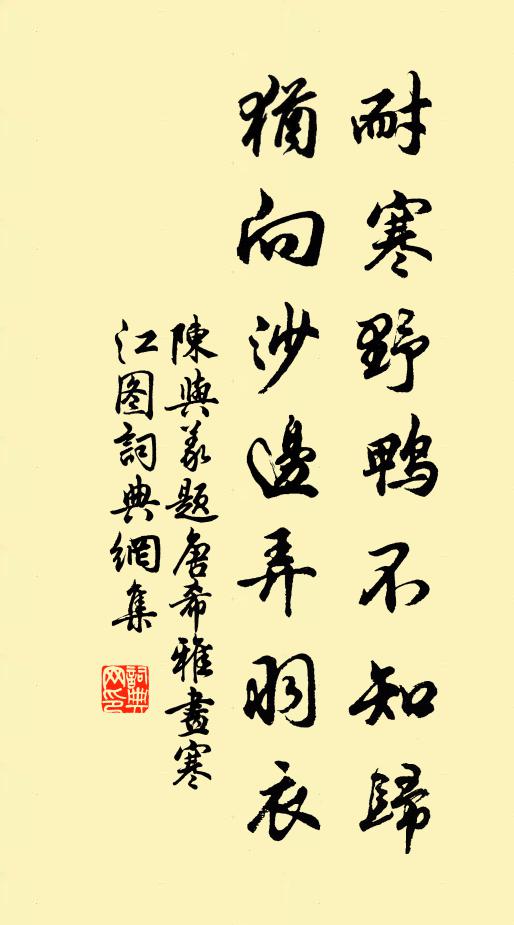 耐寒野鴨不知歸
猶向沙邊弄羽衣
陳與義題唐希雅畫寒
江图詞典網集
詞典
网印